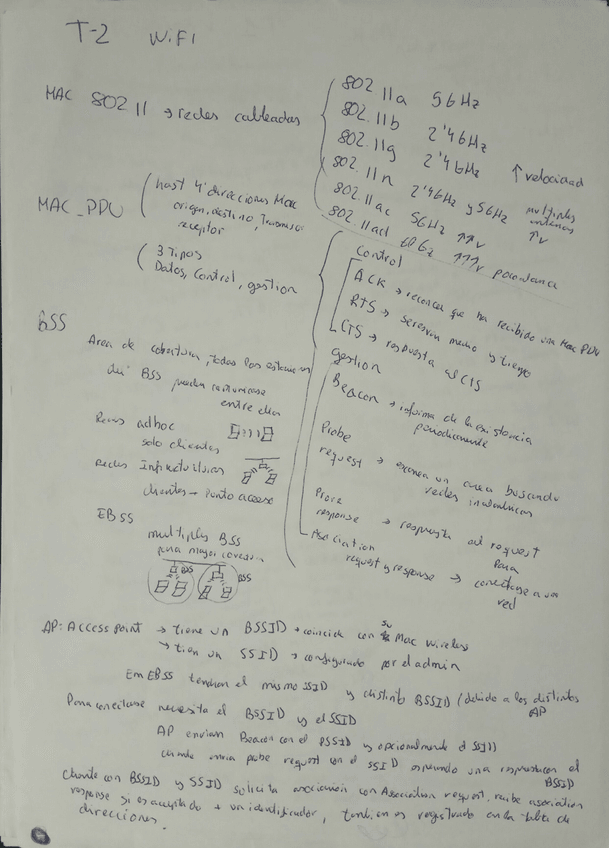 T-2 WiFi
MAC 802 11 → redes cableadas
802 11a 5GHz
802.11b 2'4GHz
802.11g 2'4GHz
802.11n 2'4GHz y 5GHz multiples antenas
↑ velocidad
802.11ac 5GHz ↑↑v ↑v
802.11ad 60Gz ↑↑↑v poca
MAC_PDU
hast 4 direcciones Mac
origen, destino, Transmisor
receptor
3 Tipos
Datos, Control, gestion
Control
ACK → reconoce que ha recibido una Mac PDU
RTS → medio y tiempo
CTS → respuesta al CTS
gestion
Beacon → informa de la existencia
periodicamente
Probe
request → escanea un area buscando
redes inalambricas
Probe
response → respuesta al request
Asociation
request y response → para
conectarse a una
red
BSS
Area de cobertura, todas las estaciones
del BSS pueden comunicarse
entre ellas
Redes adhoc
solo clientes
Redes Infraestructura
clientes → punto acceso
EBSS
multiples BSS
para mayor
BSS BSS
AP: Access point → tiene un BSSID → coincide con su Mac wireless
→ tien un SSID → configurado por el admin
Em EBSS tendran el mismo SSID y distinto BSSID (debido a los distintos
AP
Para conectarse necesita el BSSID y el SSID
AP envian Beacon con el BSSID y opcionalmente el SSID
cliente envia probe request con el SSID esperando una respuesta con el
BSSID
Cliente con BSSID y SSID solicita asociacion con Association request, recibe association
response si es aceptado + un identificador, tambien es registrado en la tabla de
direcciones.